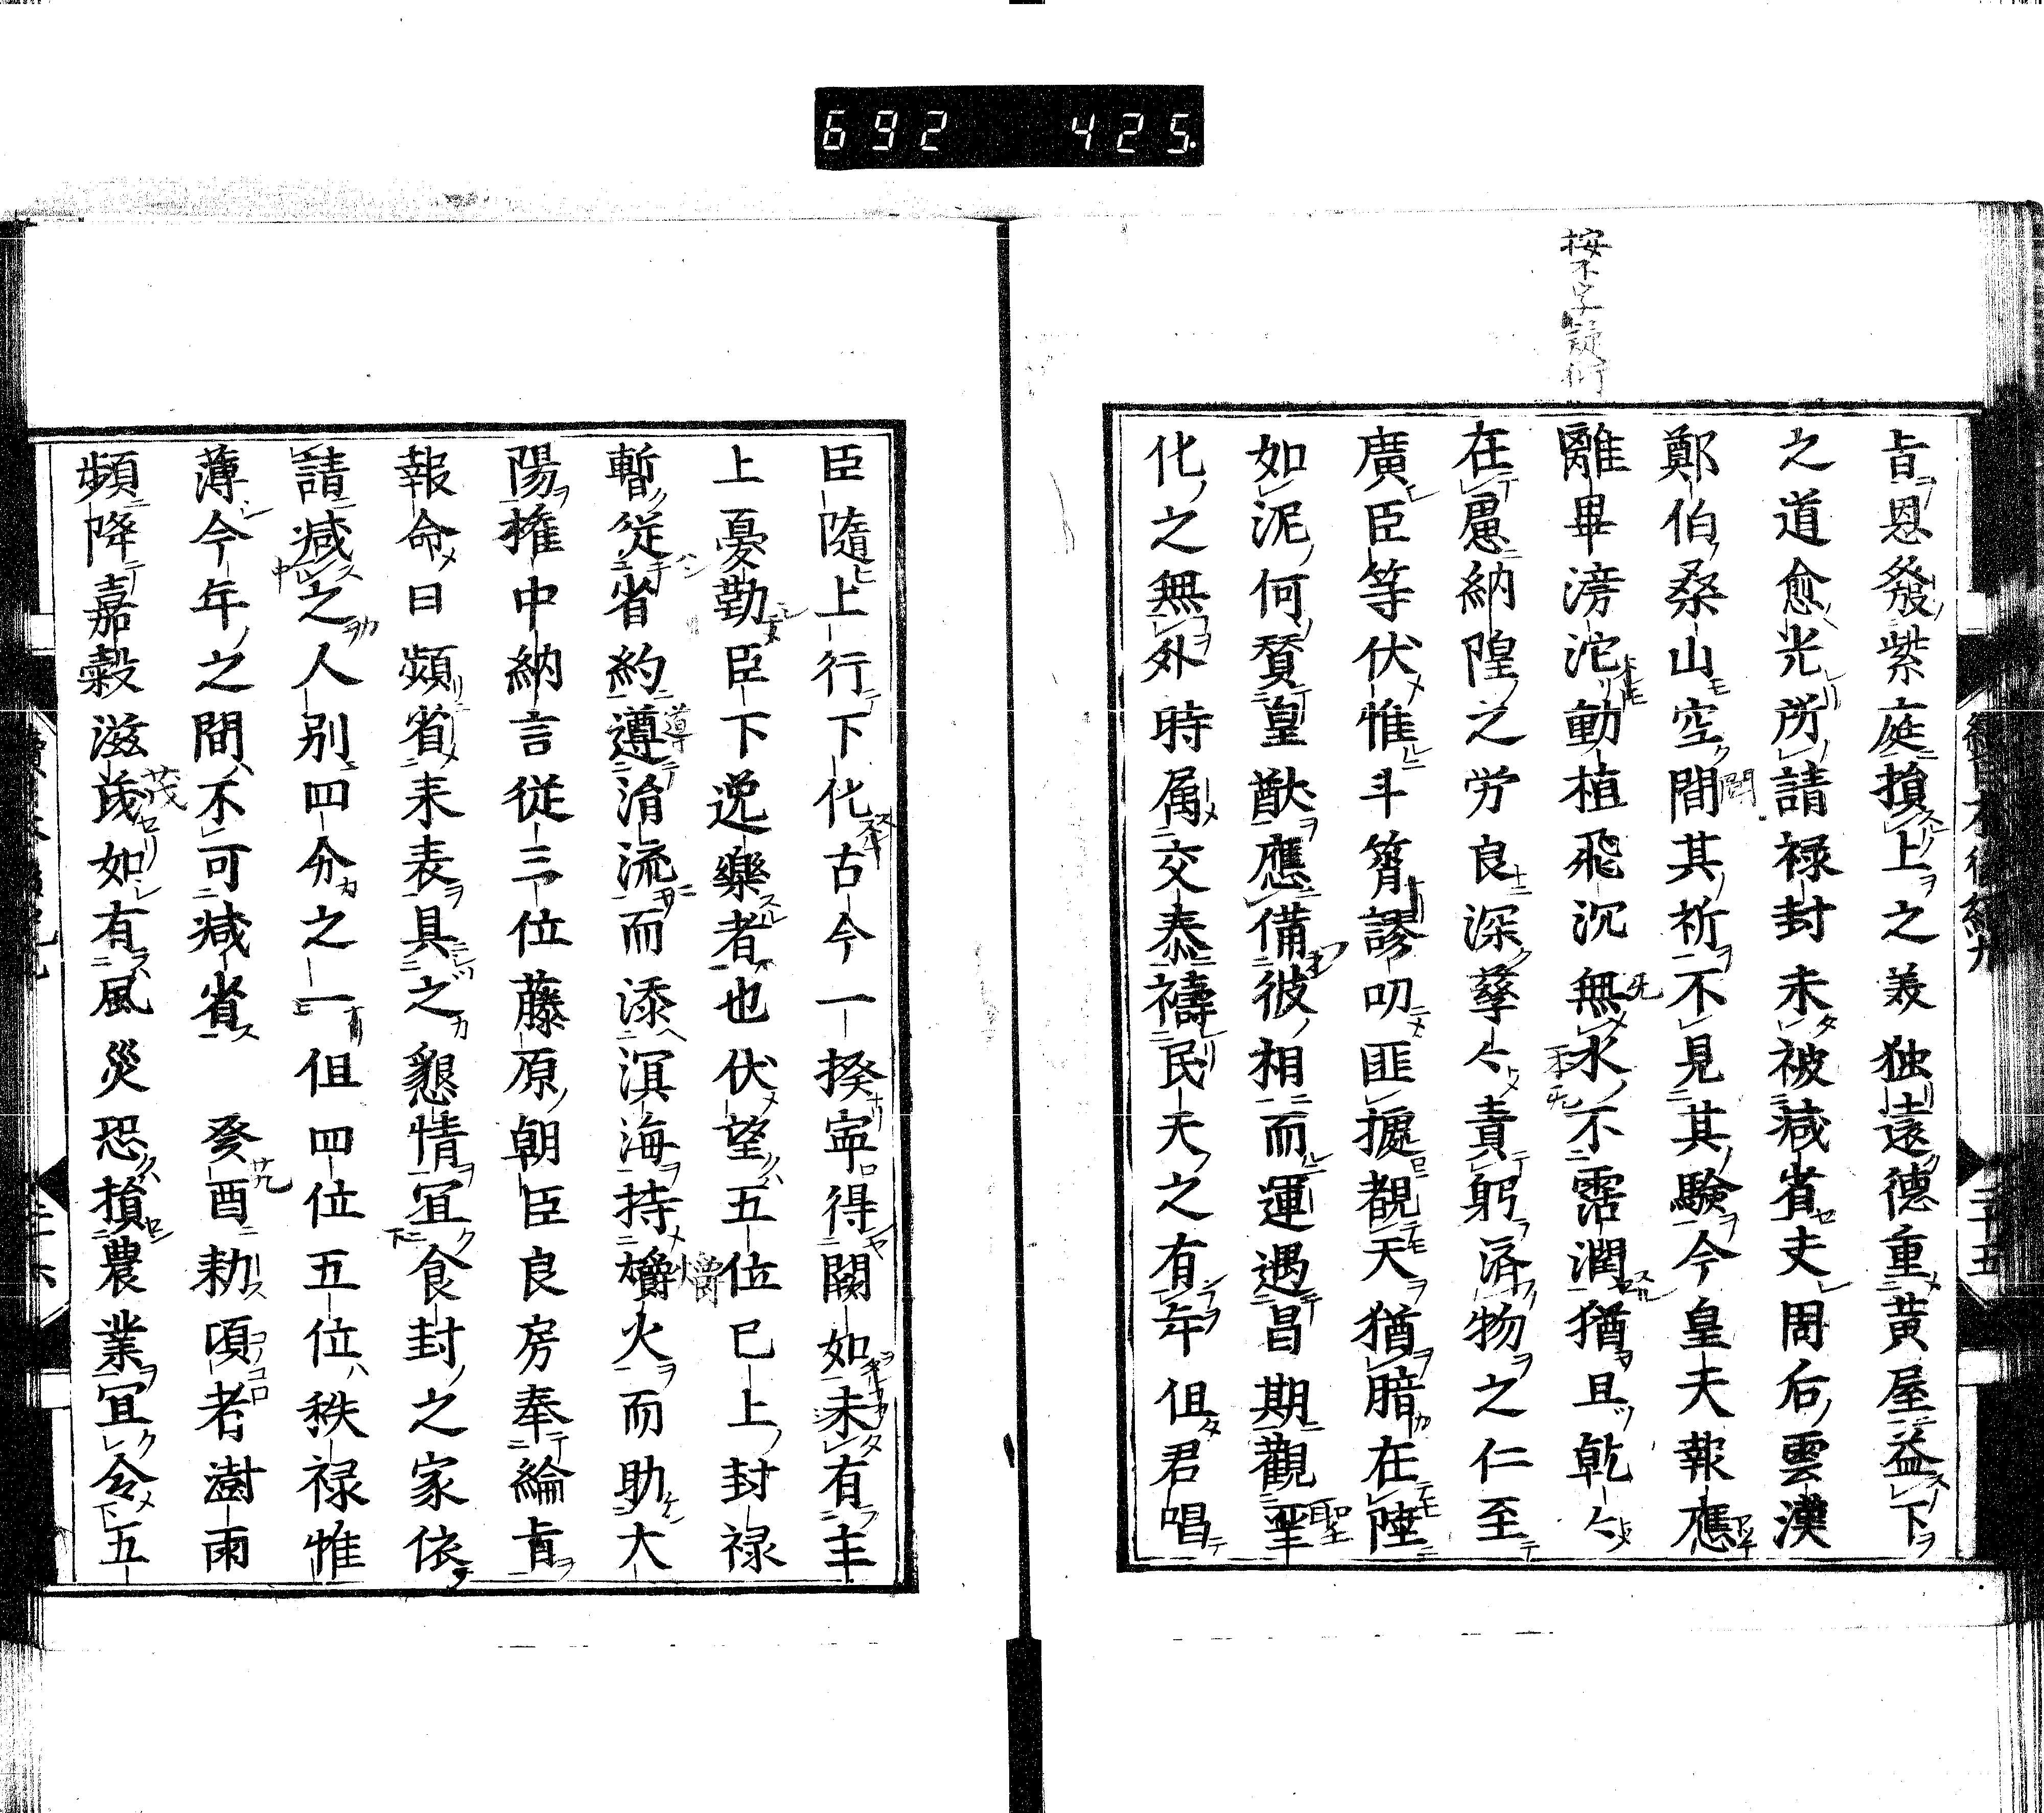 692 425
按不字疑衍
旨恩發紫庭損上之美独遠德重黃屋益下
之道愈光所請禄封未被減省夫周后雲漢
鄭伯桑山空間其祈不見其驗今皇天報應
離畢滂沱動植飛沉無水不霑潤猶且乾〻
在慮納隍之労良深孳〻責躬済物之仁至
廣臣等伏惟斗筲謬叨匪據覩天猶暗在陸
如泥何賛皇猷應備彼相而運遇昌期觀聖
化之無外時属交泰禱民天之有年但君唱
臣隨上行下化古今一揆寧得闕如未有主
上憂勤臣下逸樂者也伏望五位已上封禄
暫從省約遵涓流而添溟海持爝火而助大
陽権中納言從三位藤原朝臣良房奉綸旨
報命曰頻省来表具之懇情冝食封之家依
請減之人別四分之一但四位五位秩禄惟
薄今年之間不可減省 癸酉勅頃者澍雨
頻降嘉穀滋茂如有風災恐損農業冝令五